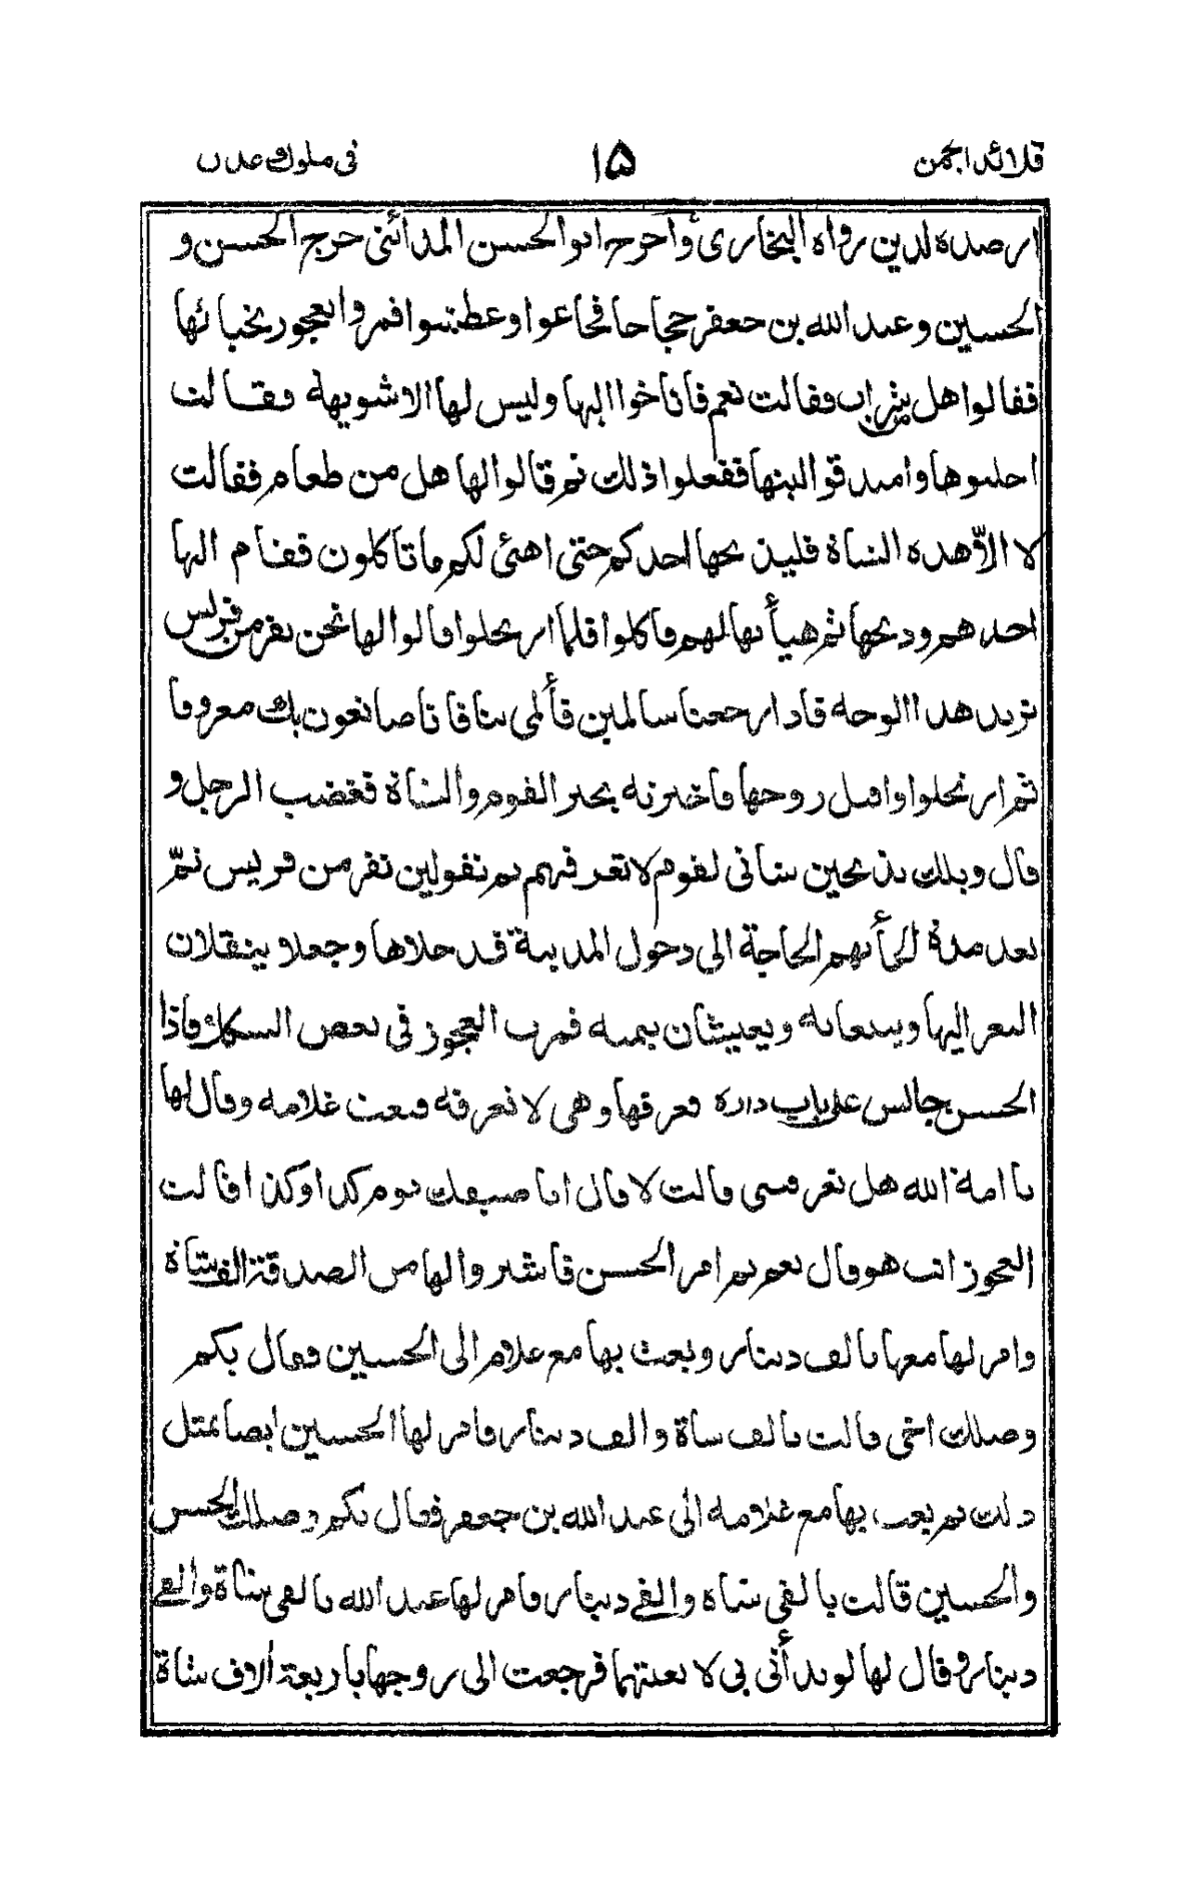 قلائد الجمن ١٥ فى ملوك عدن
ارصده لدين رواه البخارى وأخرج ابو الحسن المدائنى خرج الحسن و
الحسين وعبد الله بن جعفر حجاجا فجاعوا وعطشوا فمروا بعجوز بخبائها
فقالوا هل من شراب فقالت نعم فاناخوا اليها وليس لها الا شويهة فقالت
احلبوها وامتذقوا لبنها ففعلوا ذلك ثم قالوا لها هل من طعام فقالت
لا الاّ هذه الشاة فليذبحها احدكم حتى اهئى لكم ما تاكلون فقام اليها
احدهم وذبحها ثم هيأتها لهم فاكلوا فلما ارتحلوا قالوا لها نحن نفر من قريش
نريد هذا الوجه فاذا رجعنا سالمين فألمى بنا فانا صانعون بك معروفا
ثم ارتحلوا واقبل زوجها فاخبرته بخبر القوم والشاة فغضب الرجل و
قال ويلك تذبحين شاتى لقوم لا تعرفيهم ثم تقولين نفر من قريش ثمّ
بعد مدة ألجأتهم الحاجة الى دخول المدينة فدخلاها وجعلا ينقلان
البعر اليها ويبيعانه ويعيشان بثمنه فمرت العجوز فى بعض السكك فاذا
الحسن جالس على باب داره فعرفها وهى لا تعرفه فبعث غلامه وقال لها
يا امة الله هل تعرفينى قالت لا قال انا ضيفك يوم كذا وكذا قالت
العجوز انت هو قال نعم ثم امر الحسن فاشتروا لها من الصدقة الف شاة
وامر لها معها بالف دينار وبعث بها مع غلام الى الحسين فقال بكم
وصلك اخى قالت بالف شاة والف دينار فامر لها الحسين ايضا بمثل
ذلك ثم بعث بها مع غلامه الى عبد الله بن جعفر فقال بكم وصلك الحسن
والحسين قالت بالفى شاه والفى دينار فامر لها عبد الله بالفى شاة والفى
دينار وقال لها لو بدأتى بى لا تعبتهما فرجعت الى زوجها باربعة الاف شاة